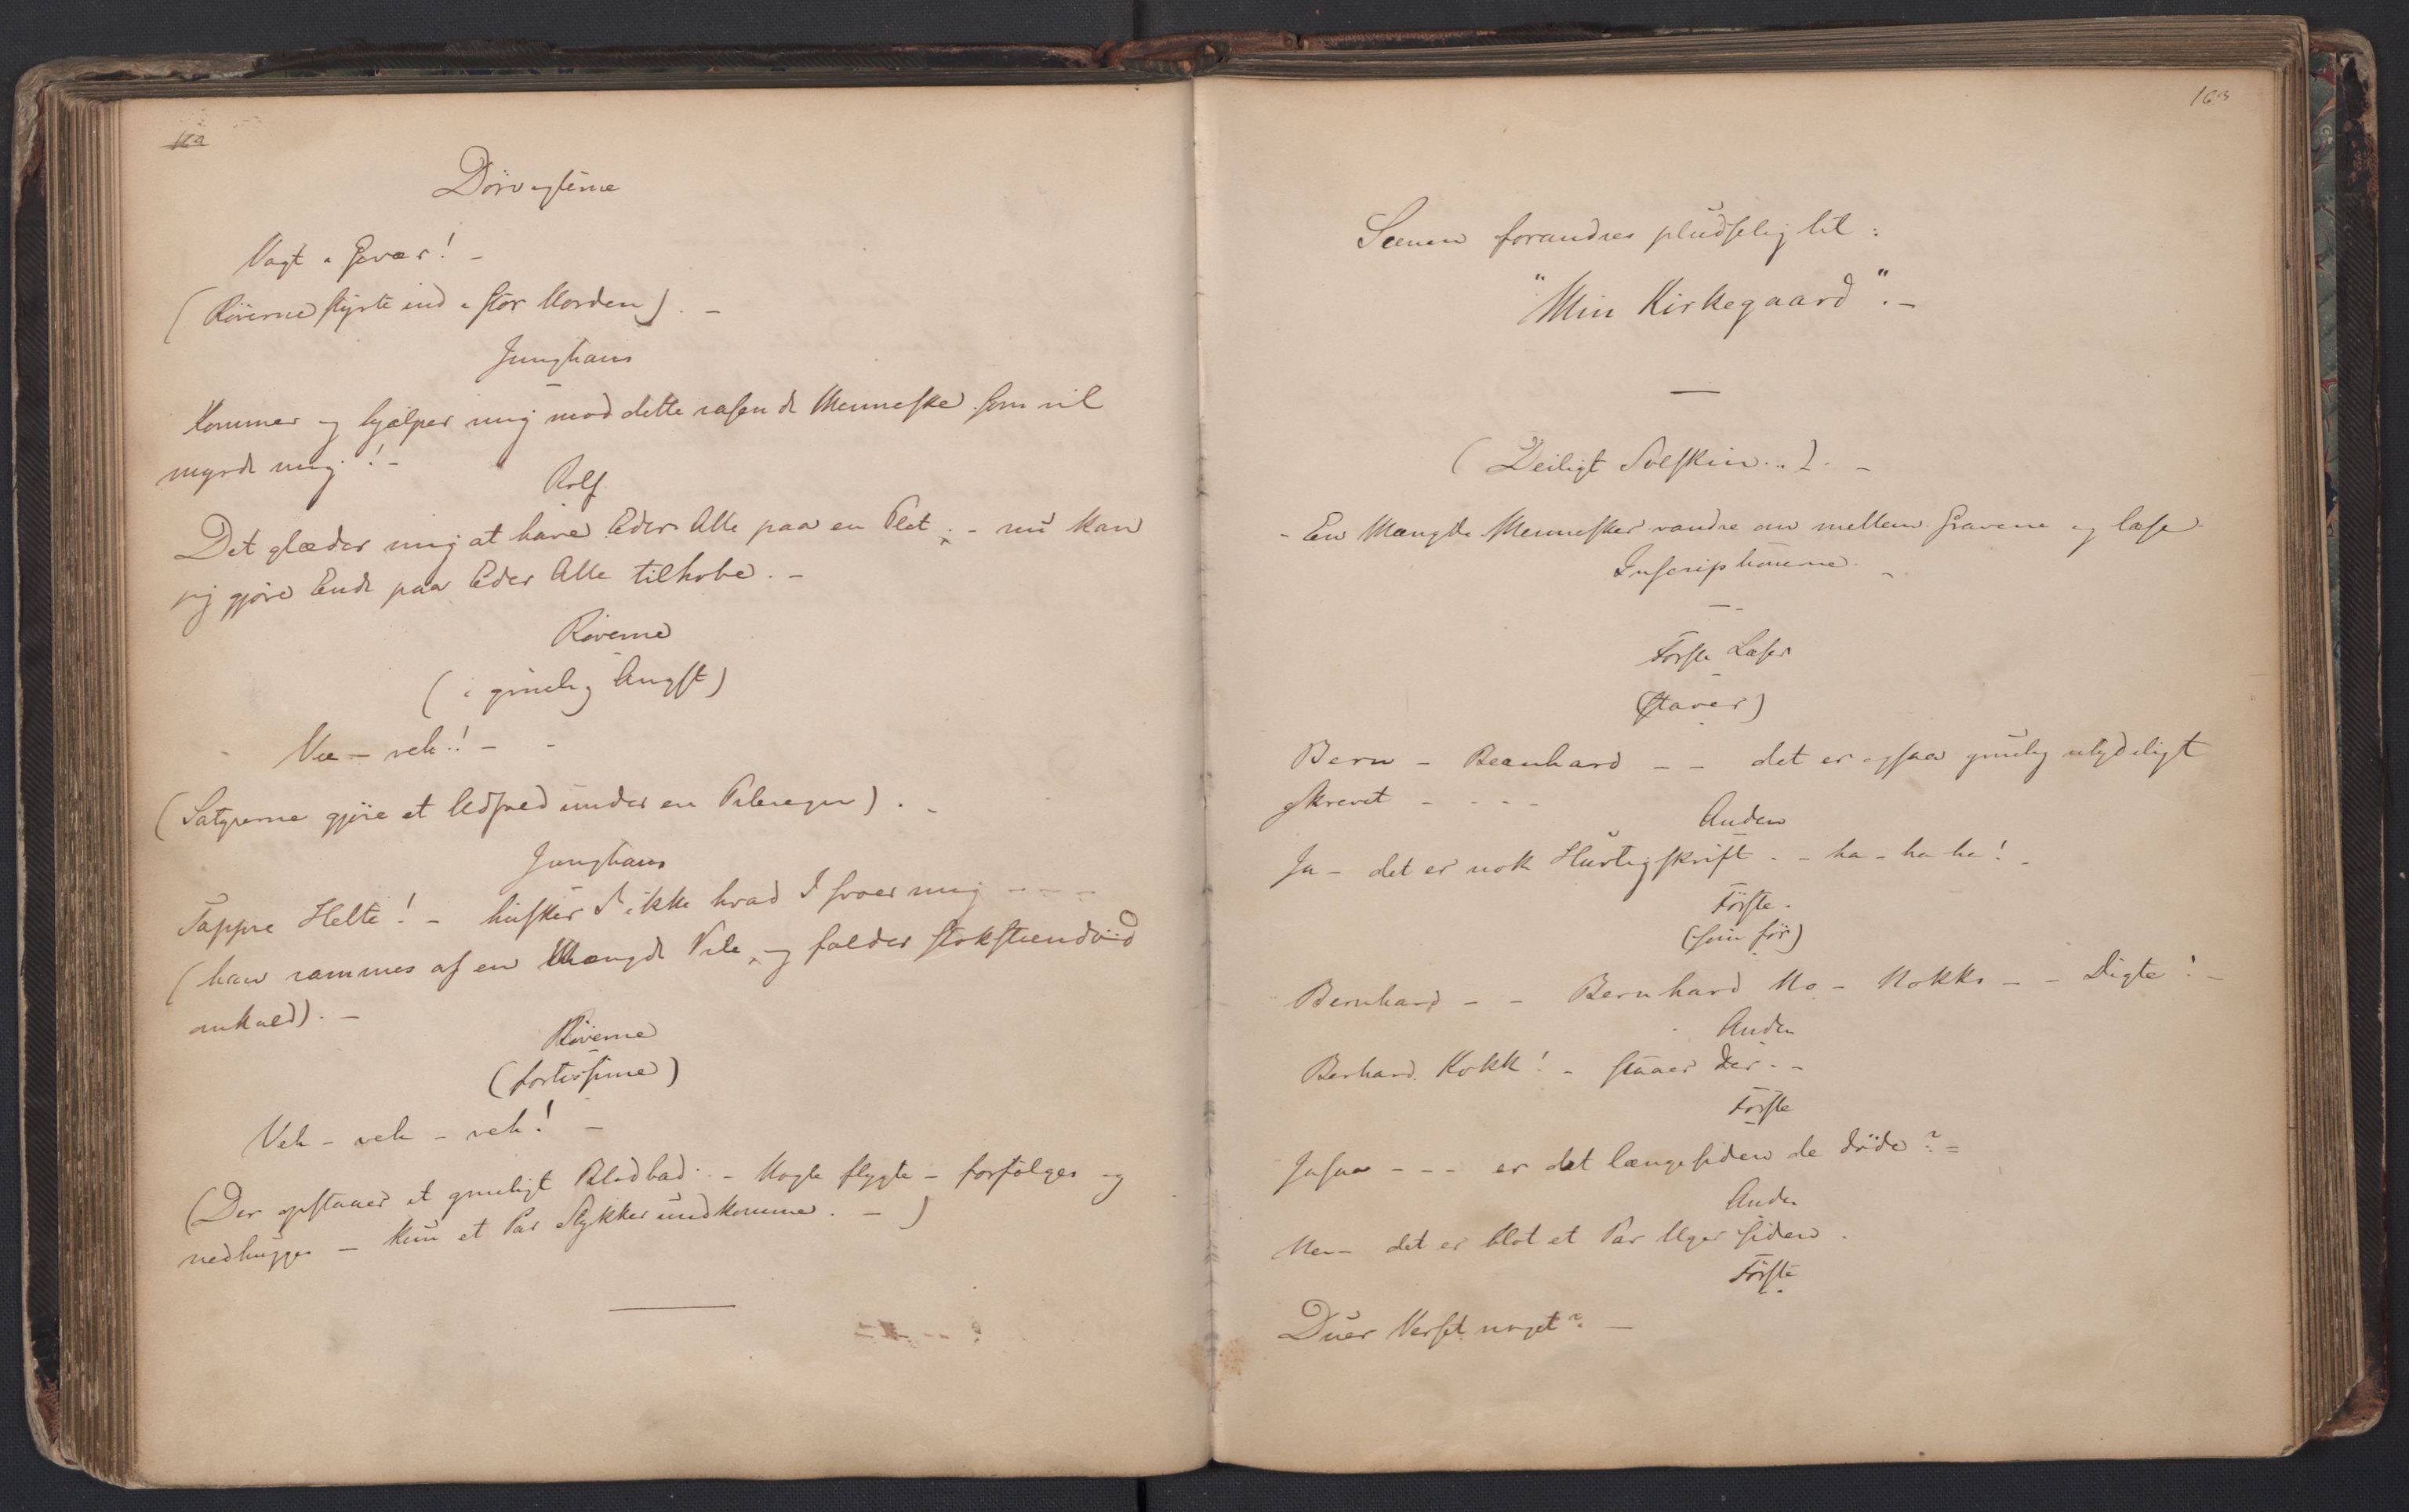 Dørvagterne
Vagt i Gevær! -
(Røverne styrte ind i stor Uorden). -
Junghans
Kommer og hjælper mig mod dette rasende Menneske som vil
myrde mig! -
Rolf
Det glæder mig at have Eder Alle paa en Plet; - nu kan
jeg gjøre Ende paa Eder Alle tilhobe. -
Røverne
(i gruelig Angst)
Vee - veh! - -
(Satyrerne gjøre et Udfald under en Pileregn). -
Junghans
Tappre Helte! - husker I ikke hvad I svoer mig - - - -
(han rammes af en Mængde Pile, og falder stokstendød
omkuld). -
Røverne
(fortissimo)
Veh - veh - veh! -
(Der opstaaer et grueligt Blodbad. - Nogle flygte - forfølges og
nedhugges - kun et Par Stykker undkomme. - )
163
Scenen forandres pludselig til:
"Min Kirkegaard". -
(Deiligt Solskin..). -
- En Mængde Mennesker vandre om mellem Gravene og læse
Inscriptionerne. -
Første Læser
(staver)
Bern - Beanhard - - det er ogsaa gruelig utydeligt
skrevet - - - -
Anden
Ja - det er nok Hurtigskrift. - ha - ha ha! -
Første.
(som før)
Bernhard - - Bernhard Ko - Kokks - - Digte! -
Anden
Berhard Kokk! - staaer der. -
Første
Jasaa - - - er det længesiden de døde? =
Anden
Nei - det er blot et Par Uger siden.
Første
Duer Verset noget? -